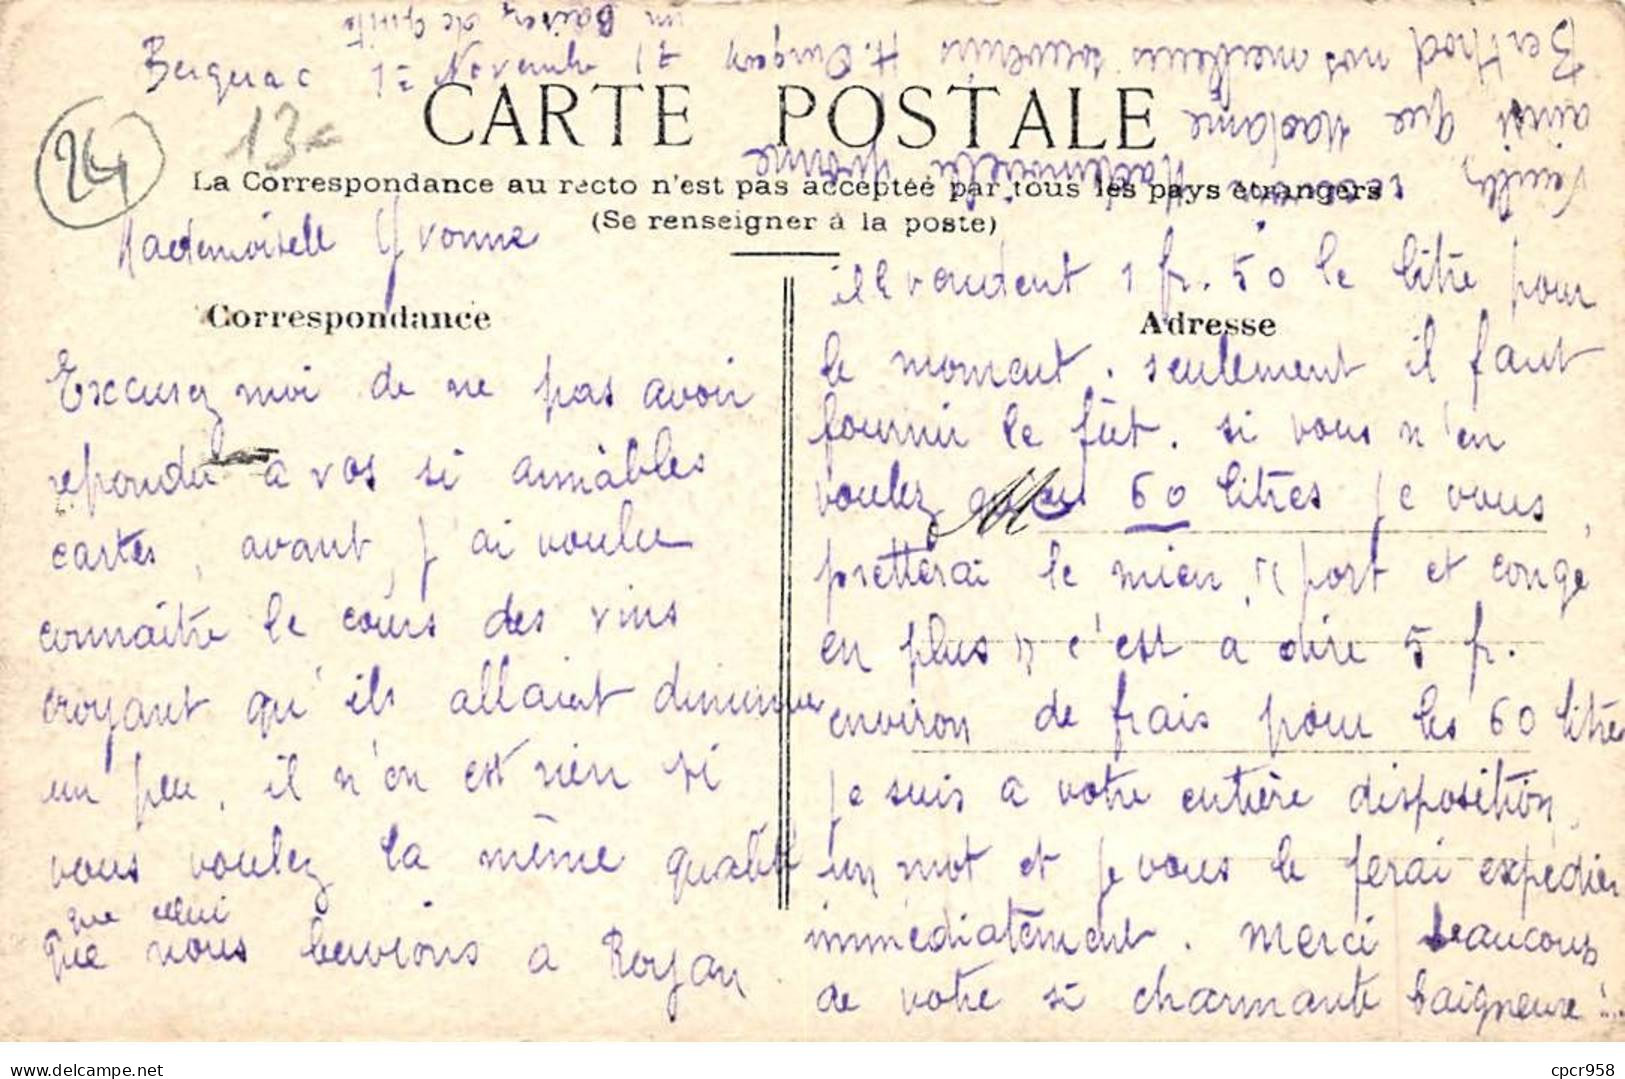 Bergerac 1er Novembre 17
24
13
CARTE POSTALE
La Correspondance au recto n'est pas acceptée par tous les pays étrangers
(Se renseigner à la poste)
Mademoiselle Yvonne
Correspondance
Excusez moi de ne pas avoir
repondu a vos si aimables
cartes, avant, j'ai voulu
connaitre le cours des vins
croyant qu'ils allaient diminuer
un peu, il n'en est rien si
vous voulez la même qualité
que celui
que nous buvions a Royan
Adresse
ils vendent 1 fr. 50 le litre pour
le moment. seulement il faut
fournir le fût. si vous n'en
voulez que 60 litres je vous
pretterai le mien, "port et congé
en plus" c'est a dire 5 fr.
environ de frais pour les 60 litres
je suis a votre entière disposition,
un mot et je vous le ferai expédier
immédiatement. Merci beaucoup
de votre si charmante baigneuse!...
Veuillez recevoir Mademoiselle Yvonne
ainsi que Madame
Berthod nos meilleurs souvenirs H.
un Baiser de
cpcr958